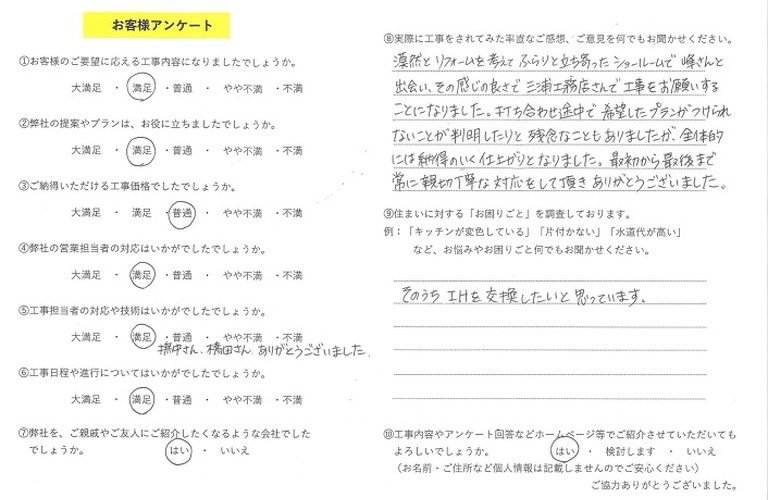 お客様アンケート
①お客様のご要望に応える工事内容になりましたでしょうか。
大満足 ・ 満足 ・普通 ・ やや不満 ・不満
②弊社の提案やプランは、お役に立ちましたでしょうか。
大満足 ・ 満足 ・普通 ・ やや不満 ・不満
③ご納得いただける工事価格でしたでしょうか。
大満足 ・ 満足 ・普通 ・ やや不満 ・不満
④弊社の営業担当者の対応はいかがでしたでしょうか。
大満足 ・ 満足 ・普通 ・ やや不満 ・不満
⑤工事担当者の対応や技術はいかがでしたでしょうか。
大満足 ・ 満足 ・普通 ・ やや不満 ・不満
さん、橋田さん ありがとうございました.
⑥工事日程や進行についてはいかがでしたでしょうか。
大満足 ・ 満足 ・普通 ・ やや不満 ・不満
⑦弊社を、ご親戚やご友人にご紹介したくなるような会社でした
でしょうか。 はい ・ いいえ
⑧実際に工事をされてみた率直なご感想、ご意見を何でもお聞かせください。
漠然とリフォームを考えてふらりと立ち寄ったショールームで峰さんと
出会い、その感じの良さで三浦工務店さんで工事をお願いする
ことになりました。打ち合わせ途中で希望したプランがつけられ
ないことが判明したりと残念なこともありましたが、全体的
には納得のいく仕上がりとなりました。最初から最後まで
常に親切丁寧な対応をして頂きありがとうございました。
⑨住まいに対する「お困りごと」を調査しております。
例：「キッチンが変色している」「片付かない」「水道代が高い」
など、お悩みやお困りごと何でもお聞かせください。
そのうちIHを交換したいと思っています.
⑩工事内容やアンケート回答などホームページ等でご紹介させていただいても
よろしいでしょうか。 はい ・ 検討します ・ いいえ
（お名前・ご住所など個人情報は記載しませんのでご安心ください）
ご協力ありがとうございました。